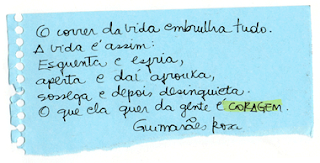 O correr da vida embrulha tudo.
A vida é assim:
Esquenta e esfria,
aperta e daí afrouxa,
sossega e depois desinquieta.
O que ela quer da gente é CORAGEM.
Guimarães Rosa